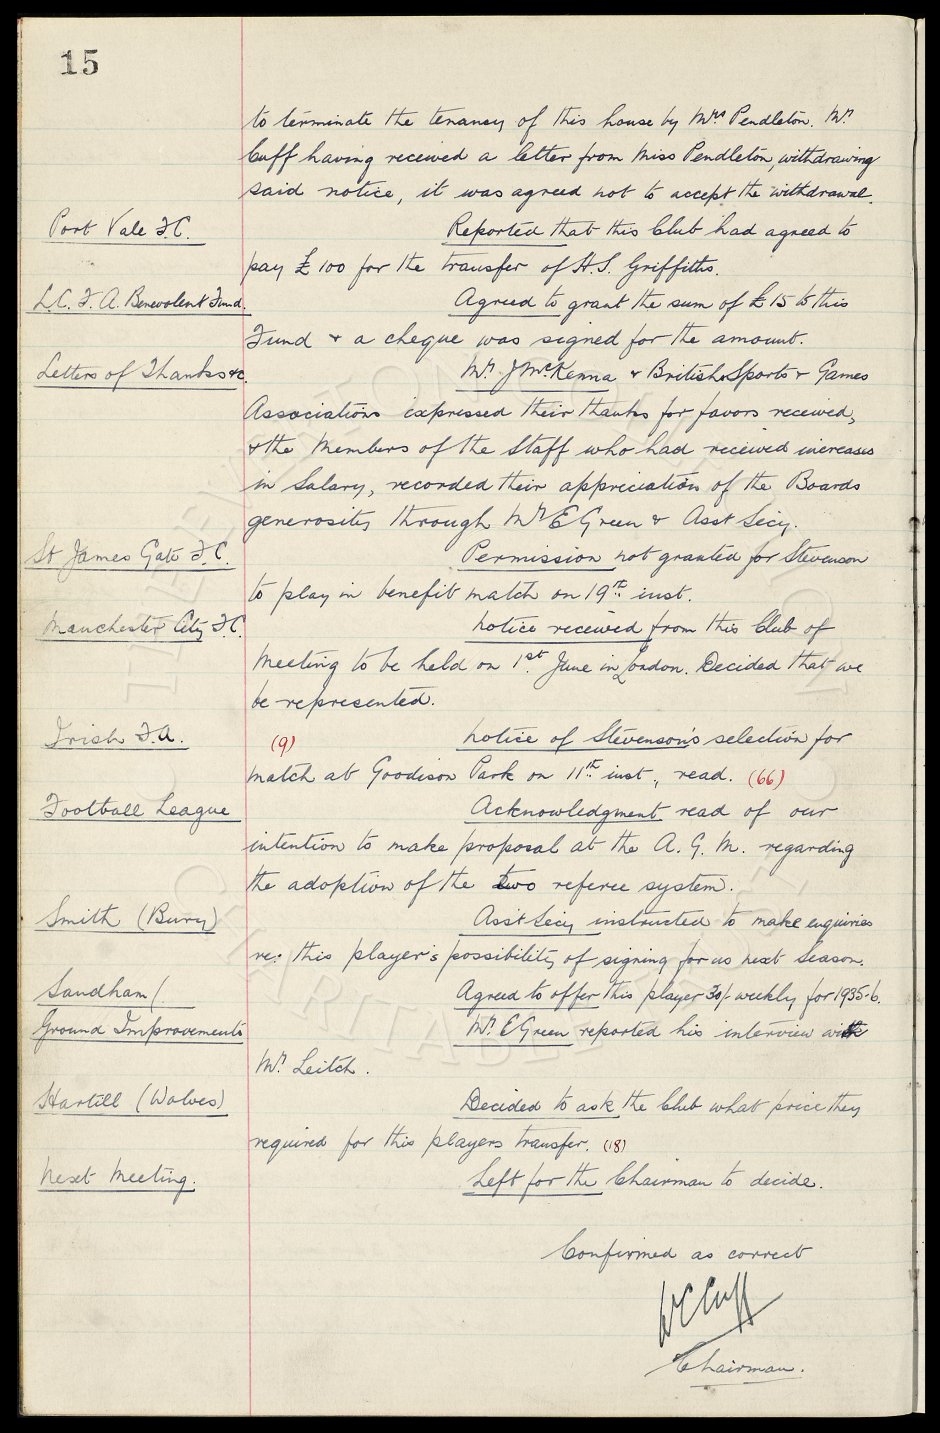 15
to terminate the tenancy of this house by Mrs Pendleton. Mr
Cuff having received a letter from Miss Pendleton, withdrawing
said notice, it was agreed not to accept the withdrawal.
Port Vale F.C. Reported that this Club had agreed to
pay £100 for the transfer of H.S. Griffiths.
L.C. F.A. Benevolent Fund. Agreed to grant the sum of £15 to this
Fund & a cheque was signed for the amount.
Letters of Thanks &c. Mr. J McKenna & British Sports & Games
Associations expressed their thanks for favors received,
& the Members of the Staff who had received increases
in Salary, recorded their appreciation of the Boards
generosity through Mr E Green & Asst Secy.
St James Gate F.C. Permission not granted for Stevenson
to play in benefit match on 19th inst.
Manchester City F.C. Notice received from this Club of
Meeting to be held on 1st. June in London. Decided that we
be represented.
Irish F.A. (9) Notice of Stevenson's selection for
match at Goodison Park on 11th inst., read. (66)
Football League Acknowledgment read of our
intention to make proposal at the A.G.M. regarding
the adoption of the two referee system.
Smith (Bury) Asst Secy instructed to make enquiries
re: this player's possibility of signing for us next Season.
Sandham/. Agreed to offer this player 30/- weekly for 1935-6.
Ground Improvements Mr. E Green reported his interview with
Mr. Leitch.
Hartill (Wolves) Decided to ask the Club what price they
required for this players transfer. (18)
Next Meeting. Left for the Chairman to decide.
Confirmed as correct
W C Cuff
Chairman.
THE EVERTON COLLECTION
CHARITABLE TRUST